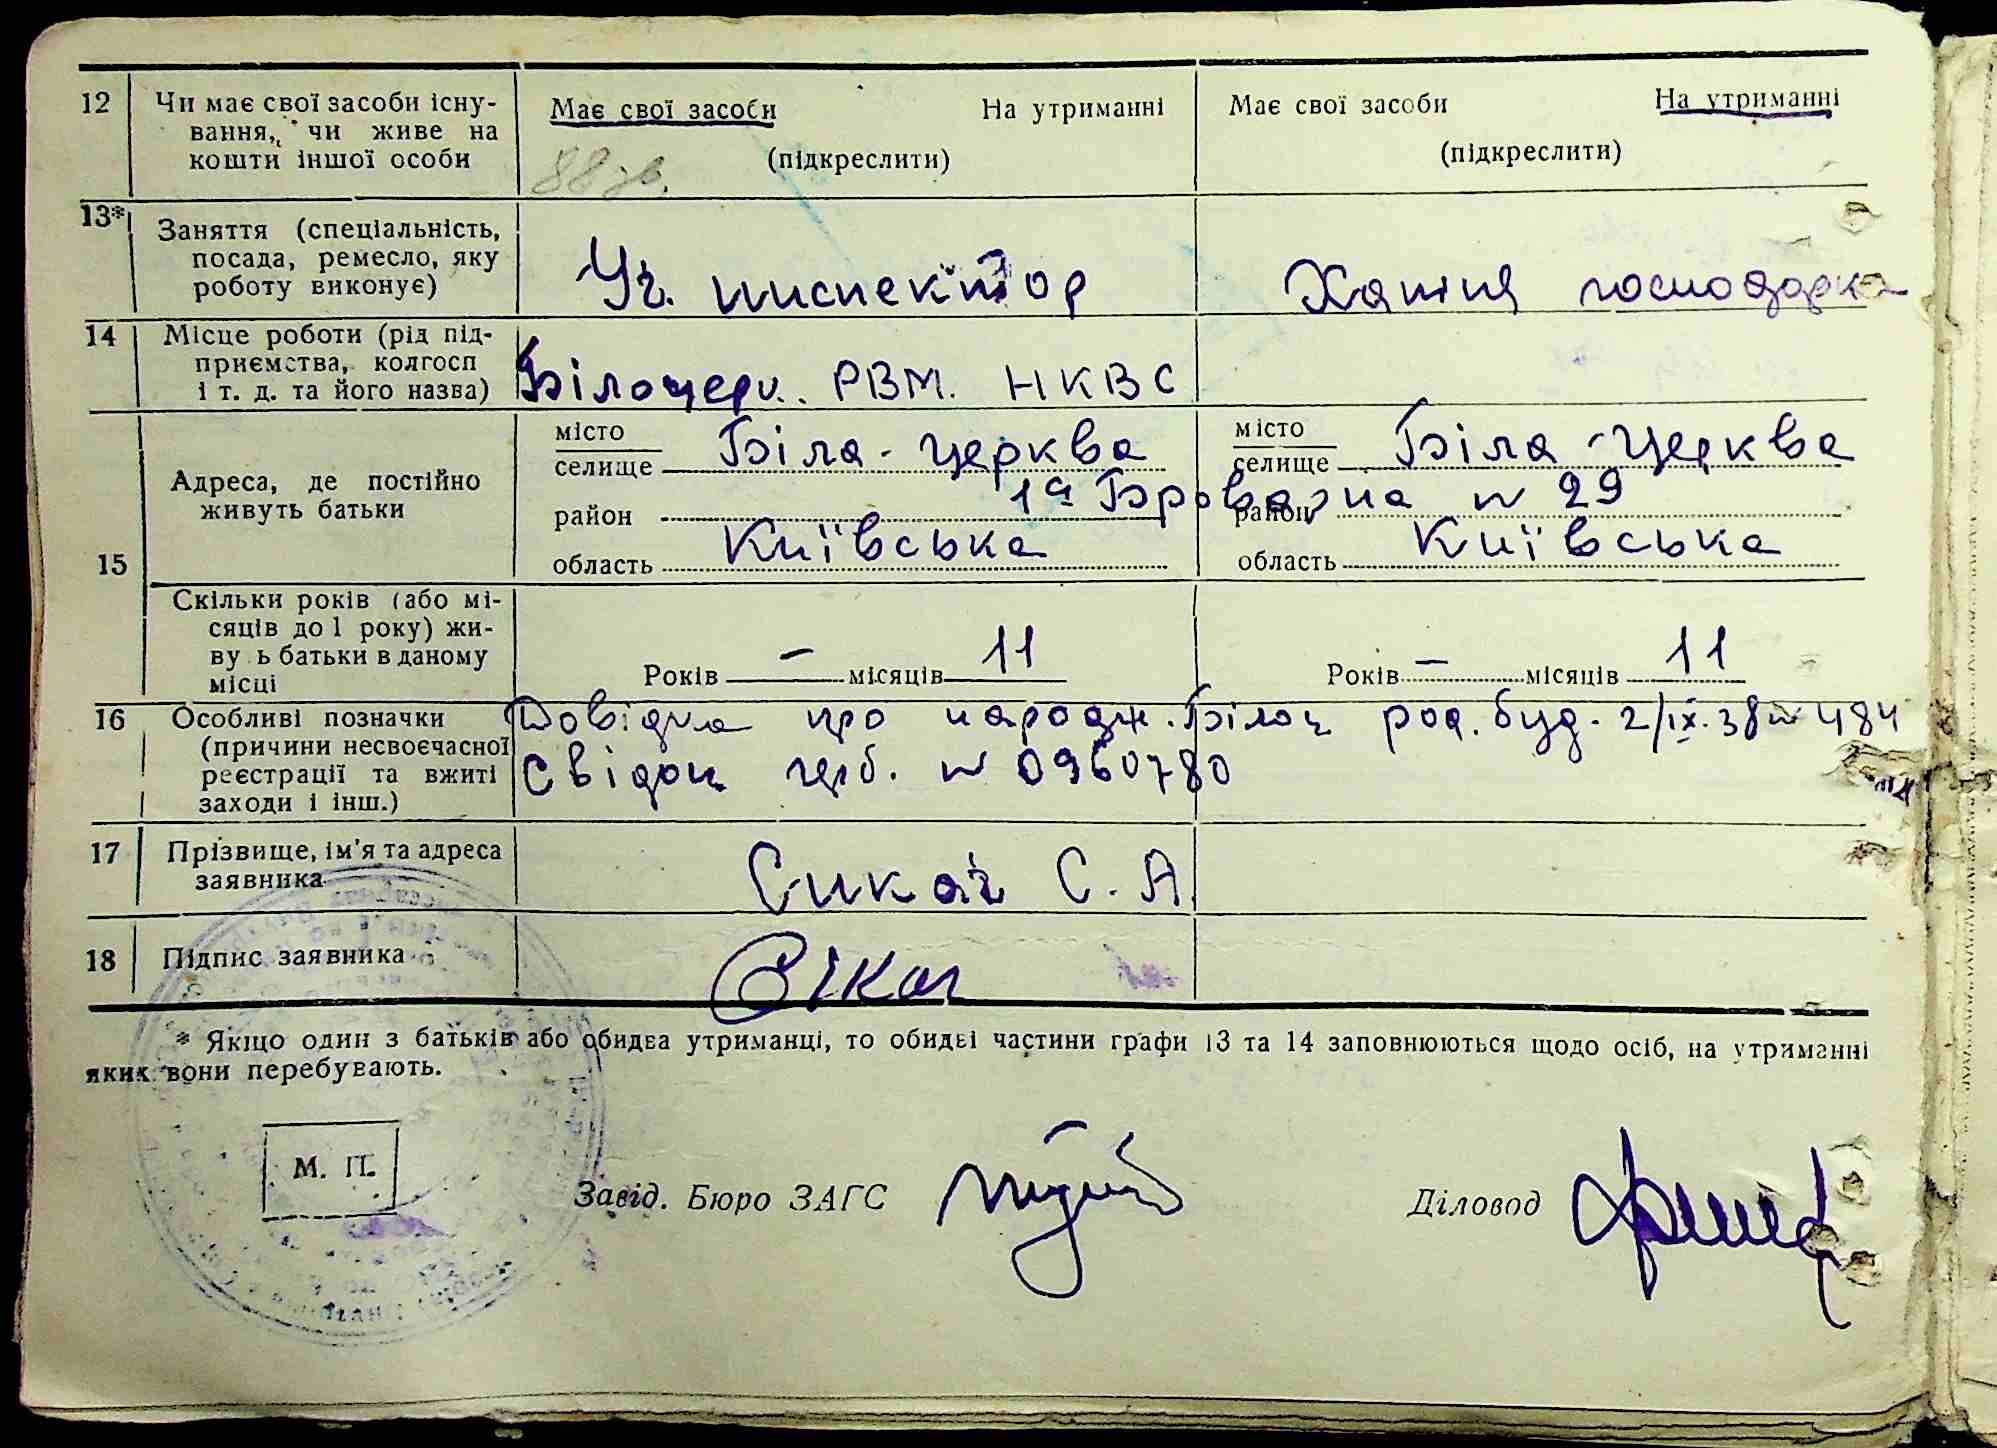 12 Чи має свої засоби існу- Має свої засоби На утриманні Має свої засоби На утриманні
вання, чи живе на
кошти іншої особи (підкреслити) (підкреслити)
13* Заняття (спеціальність,
посада, ремесло, яку
роботу виконує) Уч. инспектор Хатня господарка
14 Місце роботи (рід під-
приємства, колгосп
і т. д. та його назва) Білоцерк. РВМ. НКВС
15 Адреса, де постійно
живуть батьки
місто
селище Біла-Церква
місто
селище Біла-Церква
район 1а Броварна район N 29
область Київська область Київська
Скільки років (або мі-
сяців до 1 року) жи-
ву ь батьки в даному
місці Років – місяців 11 Років – місяців 11
16 Особливі позначки Довідка про народж. Білоц род. буд. 2/ІХ.38 N 484
(причини несвоєчасної
реєстрації та вжиті Свідоц N 0960780
заходи і інш.)
17 Прізвище, ім'я та адреса
заявника Сикач С. А.
18 Підпис заявника Сікач
* Якщо один з батьків або обидва утриманці, то обидві частини графи 13 та 14 заповнюються щодо осіб, на утриманні
яких вони перебувають.
М. П.
Завід. Бюро ЗАГС Діловод